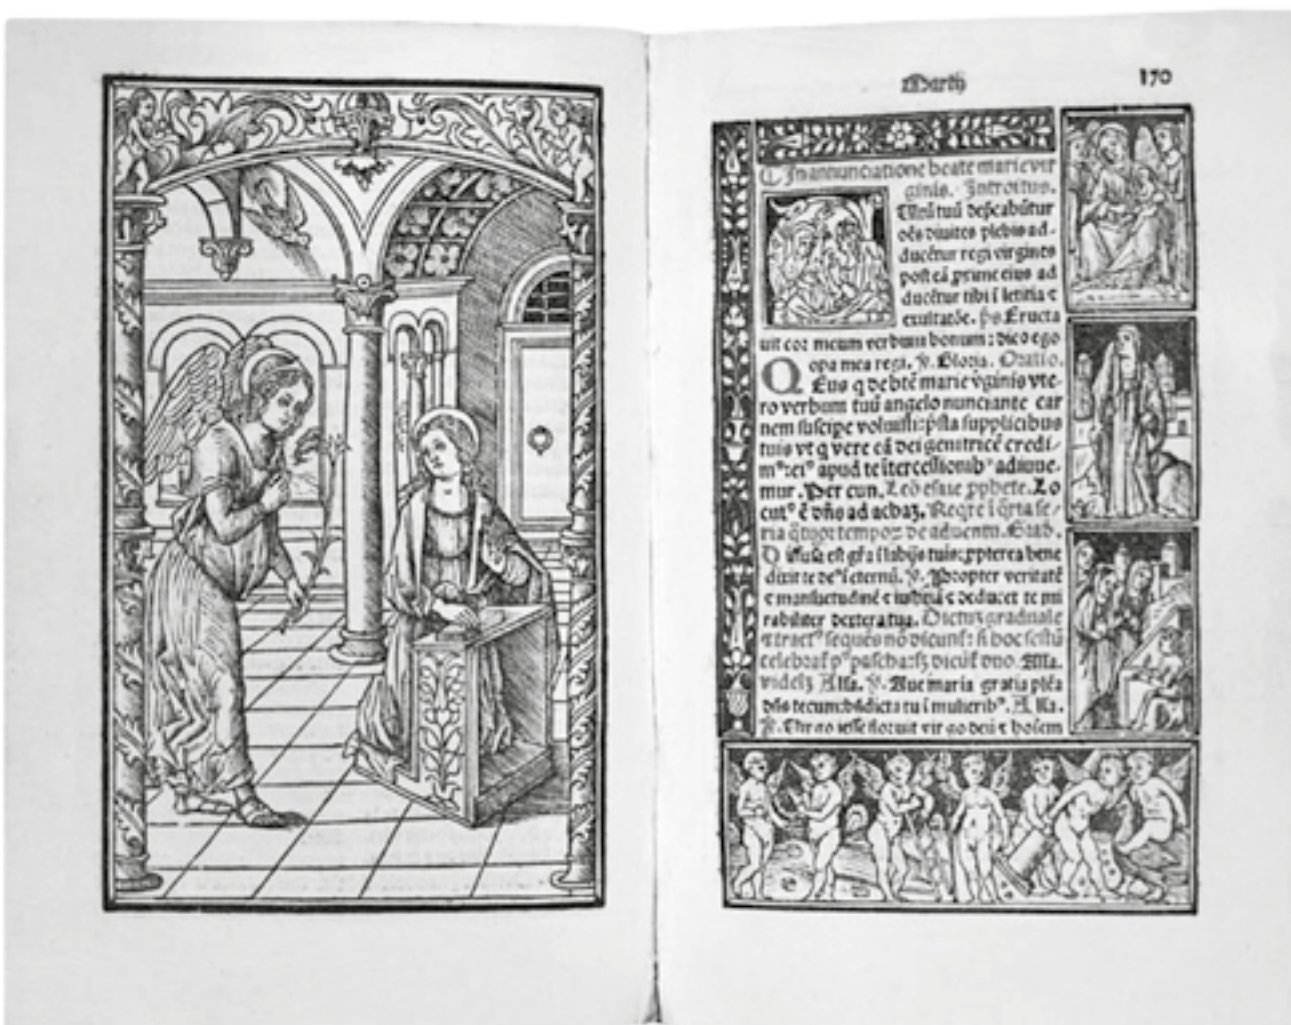 Martij 170
¶ In annunciatione beate marie vir
ginis. Introitus.
Vultū tuū dep̄cabūtur
oēs diuites plebis ad-
ducētur regi virgines
post eā proxime eius ad
ducētur tibi ī letitia ⁊
exultatōe. p̄s. Eructa
uit cor meum verbum bonum: dico ego
opa mea regi. ℣. Gloria. Oratio.
Eus q de btē marie v̄ginis vte-
ro verbum tuū angelo nunciante car
nem suscipe voluisti: p̄sta supplicibus
tuis vt q vere eā dei genitricē credi-
mꝰ: eiꝰ apud te ītercessionibꝰ adiuue-
mur. Per eun. Leō esaie p̄phete. Lo
cutꝰ ē dn̄s ad achaz. Reqre ī q̄rta fe-
ria q̄tuor tempoꝝ de aduentu. Grad.
Diffusa est gr̄a ī labijs tuis: p̄pterea bene
dixit te deꝰ ī eternū. ℣. Propter veritatē
⁊ mansuetudinē ⁊ iustitiā ⁊ deducet te mi
rabiliter dextera tua. Dictuꝫ graduale
⁊ tractꝰ seques nō dicunt: si hoc festū
celebrat pꝰ pascha dicūt dno. Alla.
videlꝫ Alla. ℣. Aue maria gratia plēa
dn̄s tecum: bn̄dicta tu ī mulieribꝰ. Alla.
℣. Virgo iesse floruit virgo deū ⁊ hoīem